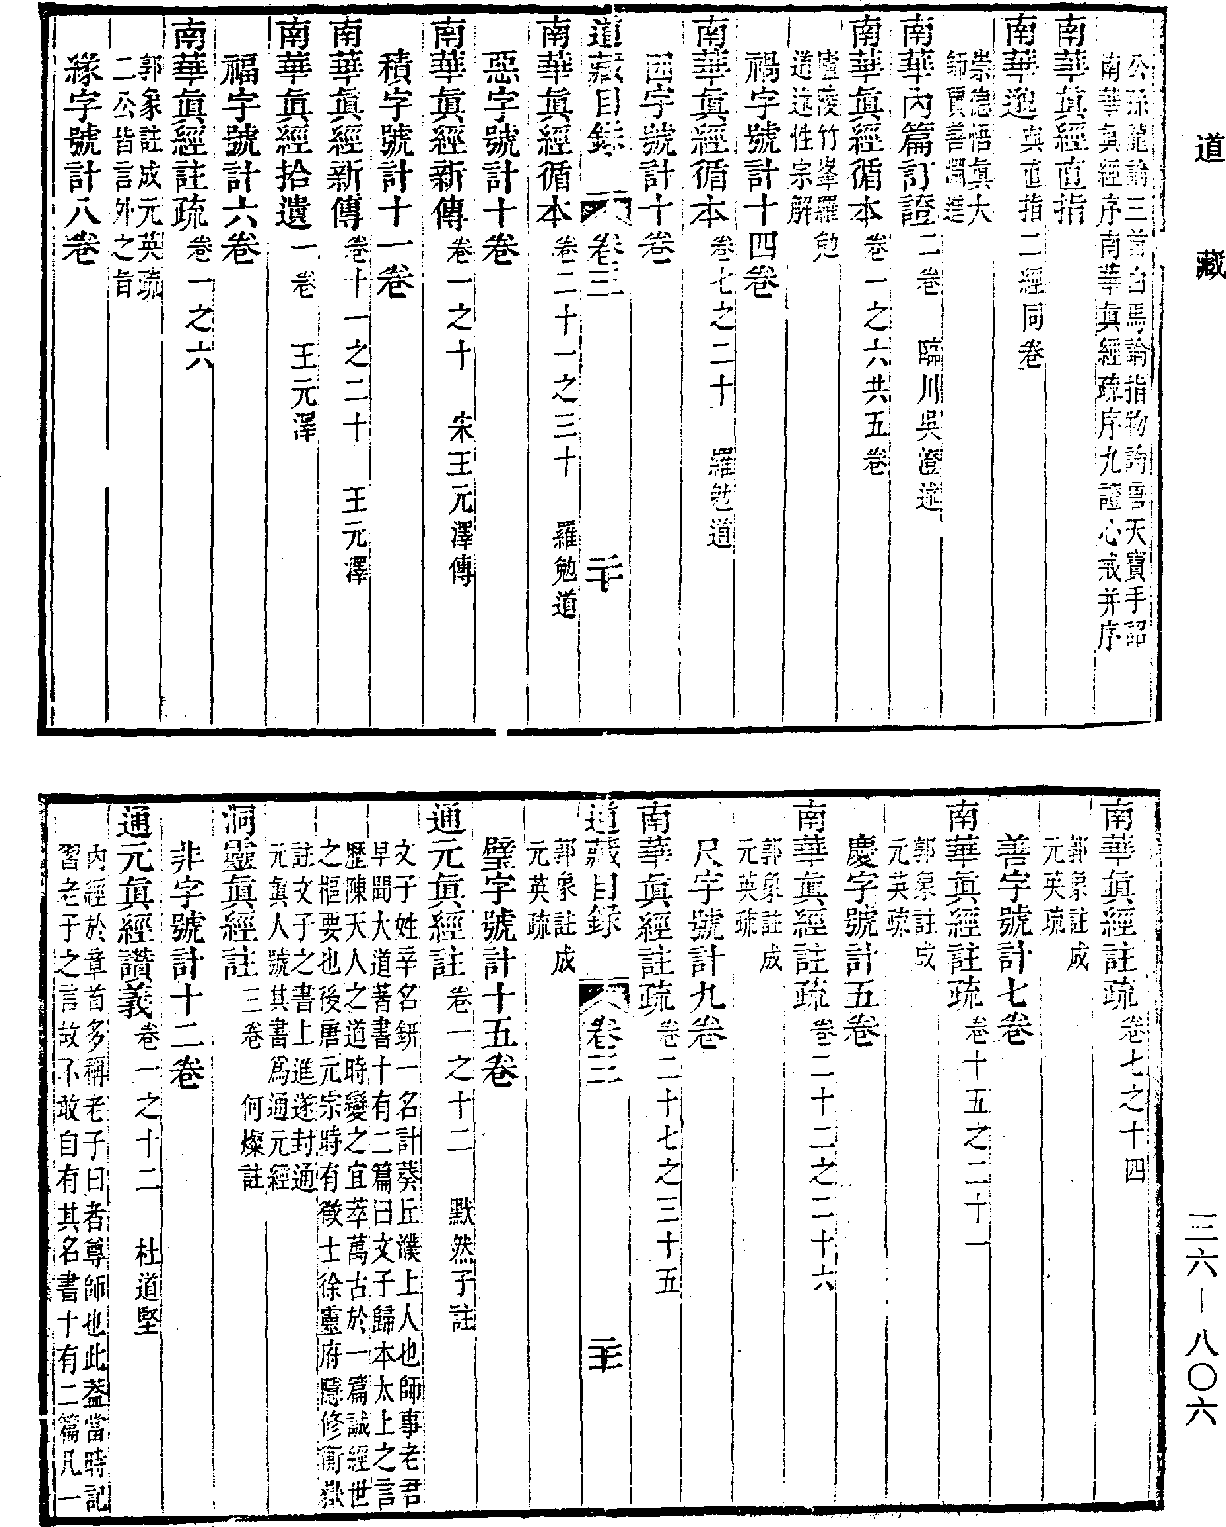 道藏
公孫龍論三首白馬論指物論唐天寶手詔
南華眞經序南華眞經疏序九證心戒并序
南華眞經直指
南華邈 與直指二經同卷
崇德悟眞大
師賈善淵進
南華內篇訂證 二卷 臨川吳澄述
南華眞經循本 卷一之六共五卷
廬陵竹峯羅勉
道述性宗解
禍字號計十四卷
南華眞經循本 卷七之二十 羅勉道
因字號計十卷
道藏目錄 卷三 二十
南華眞經循本 卷二十一之三十 羅勉道
惡字號計十卷
南華眞經新傳 卷一之十 宋王元澤傳
積字號計十一卷
南華眞經新傳 卷十一之二十 王元澤
南華眞經拾遺 一卷 王元澤
福字號計六卷
南華眞經註疏 卷一之六
郭象註成元英疏
二公皆言外之旨
緣字號計八卷
南華眞經註疏 卷七之十四
郭象註成
元英疏
善字號計七卷
南華眞經註疏 卷十五之二十一
郭象註成
元英疏
慶字號計五卷
南華眞經註疏 卷二十二之二十六
郭象註成
元英疏
尺字號計九卷
南華眞經註疏 卷二十七之三十五
道藏目錄 卷三 二十一
郭象註成
元英疏
璧字號計十五卷
通元眞經註 卷一之十二 默然子註
文子姓辛名鈃一名計葵丘濮上人也師事老君
早聞大道著書十有二篇曰文子歸本太上之言
歷陳天人之道時變之宜萃萬古於一篇誠經世
之樞要也後唐元宗時有徵士徐靈府隱修衡嶽
註文子之書上進遂封通
元眞人號其書爲通元經
洞靈眞經註 三卷 何燦註
非字號計十二卷
通元眞經讚義 卷一之十二 杜道堅
內經於章首多稱老子曰者尊師也此葢當時記
習老子之言故不敢自有其名書十有二篇凡一
三六-八〇六